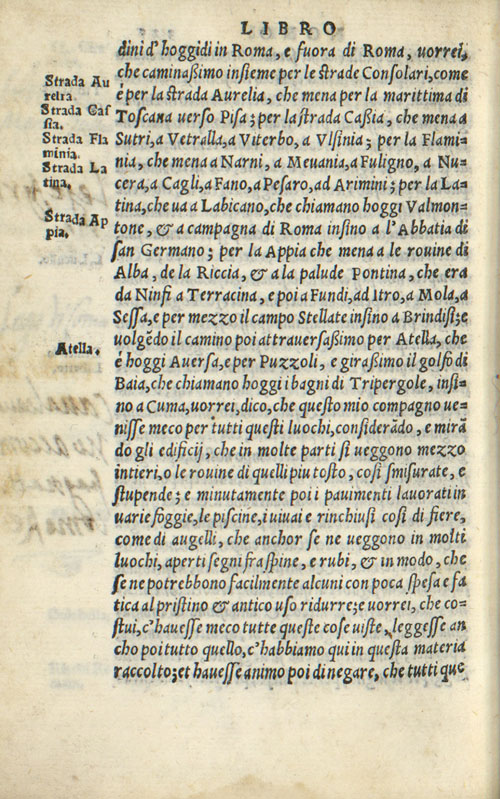 LIBRO
dini d'hoggidi in Roma, e fuora di Roma, uorrei,
che caminaßimo insieme per le strade Consolari, come
Strada Au
relia.
è per la strada Aurelia, che mena per la marittima di
Strada Caſ
ſia.
Toſcana uerſo Piſa; per la strada Caßia, che mena a
Strada Fla
minia.
Sutri, a Vetralla, a Viterbo, a Vlſinia; per la Flami-
nia, che mena a Narni, a Meuania, a Fuligno, a Nu-
Strada La
tina.
cera, a Cagli, a Fano, a Peſaro, ad Arimini; per la La-
tina, che ua a Labicano, che chiamano hoggi Valmon-
Strada Ap
pia.
tone, & a campagna di Roma inſino a l'Abbatia di
ſan Germano; per la Appia che mena a le rouine di
Alba, de la Riccia, & a la palude Pontina, che era
da Ninfi a Terracina, e poi a Fundi, ad Itro, a Mola, a
Seſſa, e per mezzo il campo Stellate inſino a Brindiſi; e
Atella.
uolgẽdo il camino poi attrauerſaßimo per Atella, che
è hoggi Auerſa, e per Puzzoli, e giraßimo il golfo di
Baia, che chiamano hoggi i bagni di Tripergole, inſi-
no a Cuma, uorrei, dico, che questo mio compagno ue-
niſſe meco per tutti questi luochi, conſiderãdo, e mirã
do gli edificij, che in molte parti ſi ueggono mezzo
intieri, o le rouine di quelli piu tosto, coſi ſmiſurate, e
stupende; e minutamente poi i pauimenti lauorati in
uarie foggie, le piſcine, i uiuai e rinchiuſi coſi di fiere,
come di augelli, che anchor ſe ne ueggono in molti
luochi, aperti ſegni fra ſpine, e rubi, & in modo, che
ſe ne potrebbono facilmente alcuni con poca ſpeſa e fa
tica al pristino & antico uſo ridurre; e uorrei, che co-
stui, c'haueſſe meco tutte queste coſe uiste, leggeſſe an
cho poi tutto quello, c'habbiamo qui in questa materia
raccolto; et haueſſe animo poi di negare, che tutti que